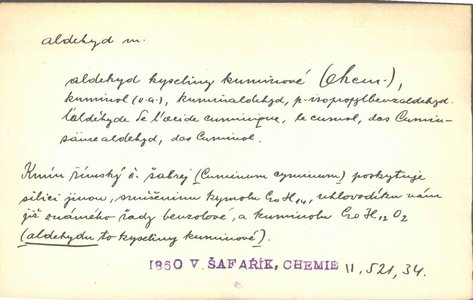 aldehyd m.
aldehyd kyseliny kuminové (Chem.),
kuminol (o.a.), kuminaldehyd, p-isopropylbenzaldehyd.
l'aldéhyde de l'acide cuminique, le cumol, das Cumin-
säurealdehyd, das Cuminol.
Kmín římský č. šabrej (Cuminum cyminum) poskytuje
silici jinou, smíšeninu kymolu C20 H14, uhlovodíku nám
již známého řady benzolové, a kuminolu C20 H12 O2
(aldehydu to kyseliny kuminové).
1860 V. ŠAFAŘÍK, CHEMIE II, 521, 34.